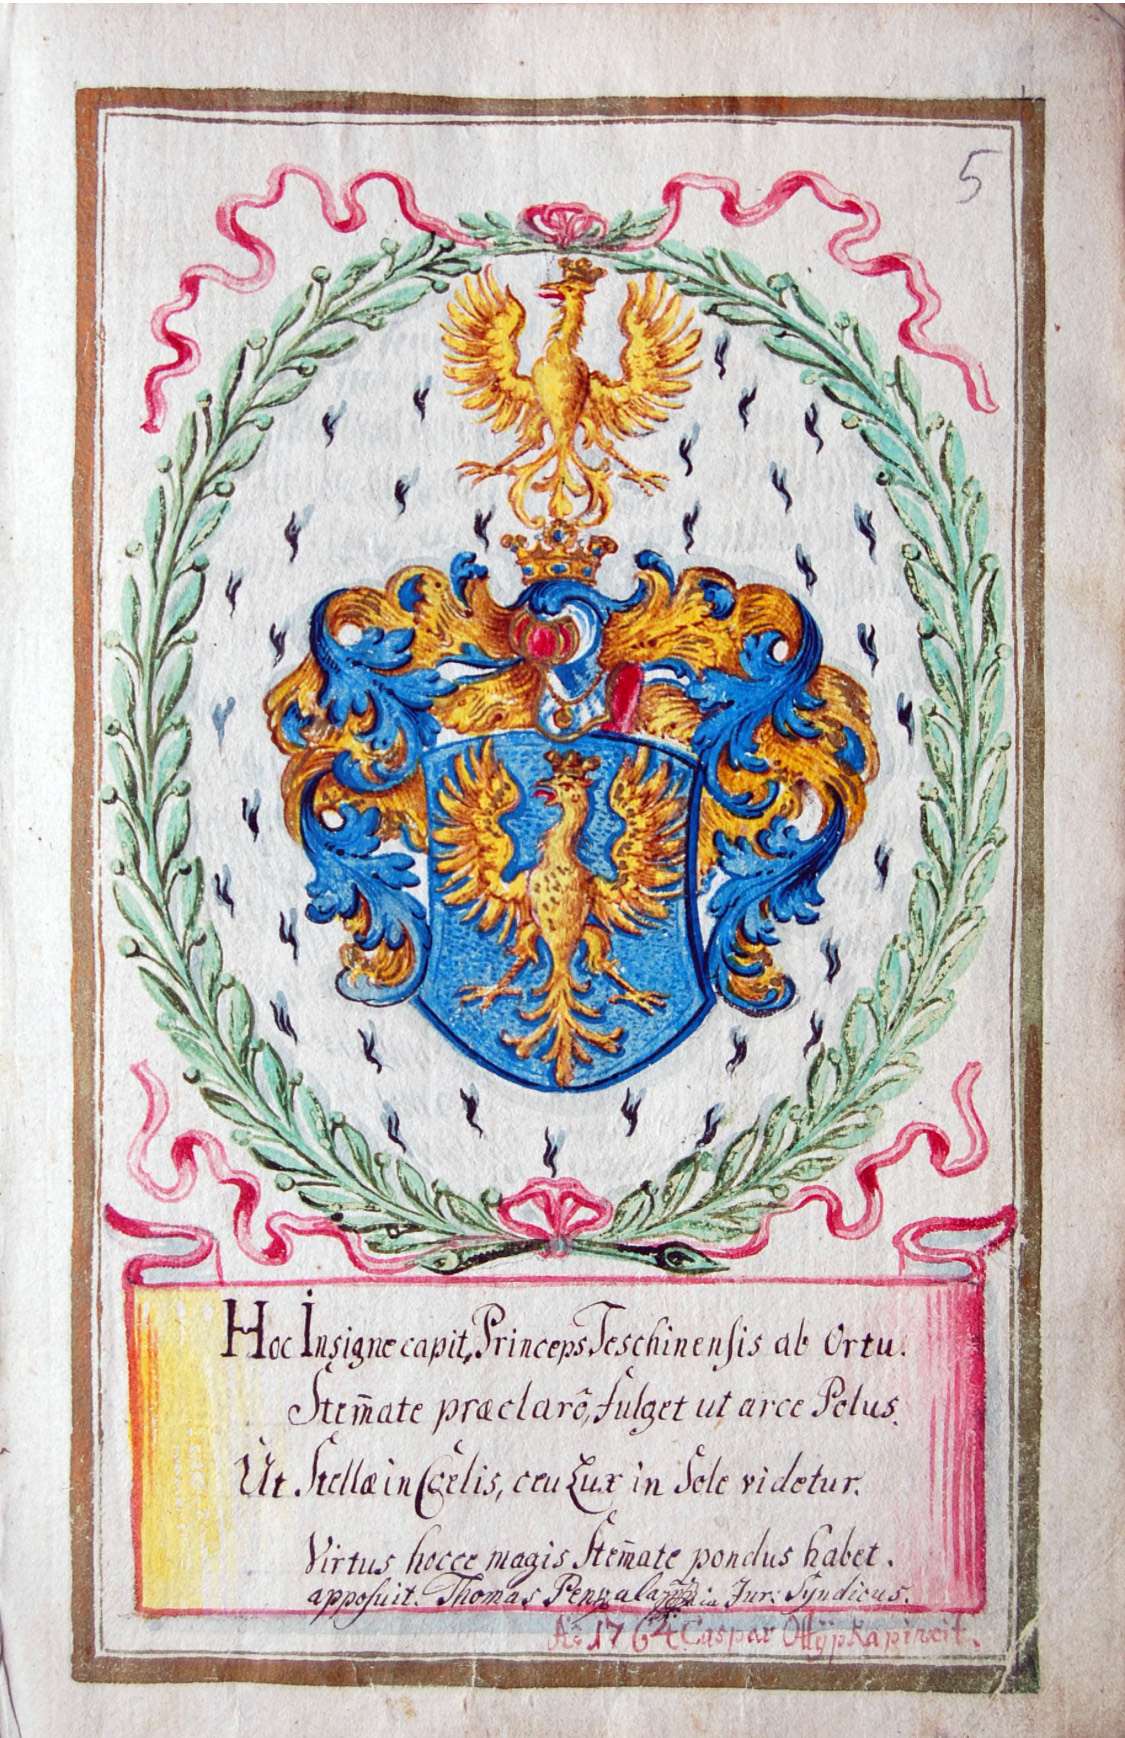 5
Hoc Insigne capit, Princeps Teschinensis ab Ortu.
Stem̄ate præclarô, fulget ut arce Polus.
Ut Stellæ in Cœlis, ceu Lux in Sole videtur.
Virtus hocce magis Stem̄ate pondus habet.
apposuit. Thomas Jur: Syndicus.
Aō 1764 Caspar pinxit.